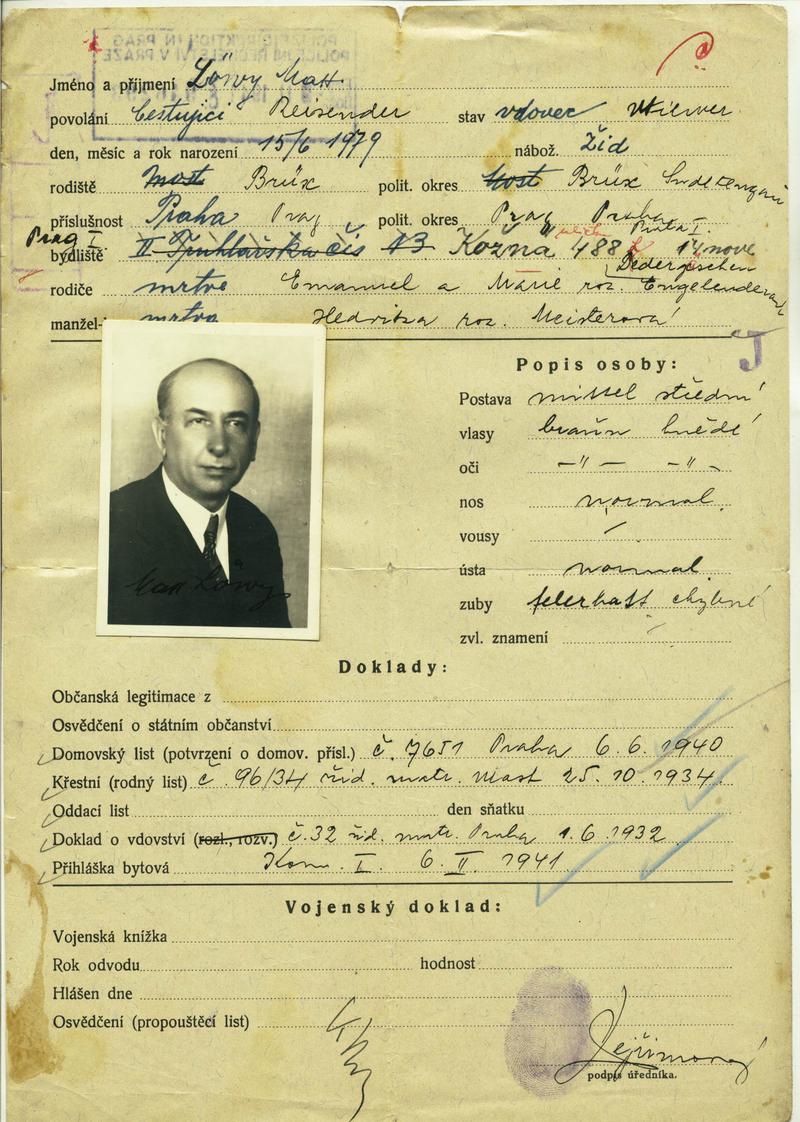 POLIZEIDIREKTION IN PRAG
POLICEJNÍ ŘEDITELSTVÍ V PRAZE
Jméno a příjmení Löwy Max
povolání Cestující Reisender stav vdovec Witwer
den, měsíc a rok narození 15/6 1879 nábož. Žid
rodiště Most Brüx polit. okres Most Brüx Sudetengau
příslušnost Praha Prag polit. okres Prag Praha
Prag I. Praha I.
bydliště II Truhlářská čís 13 Kožná č. 488 14 nové
rodiče mrtvé Emanuel a Marie roz. Engelender
manžel- mrtva Hedvika roz. Meisterová
J
Popis osoby:
Postava mittel střední
vlasy braun hnědé
oči –"– –"–
nos normal
vousy –
ústa normal
zuby fehlerhaft chybné
zvl. znamení –
Max Löwy
Doklady:
Občanská legitimace z
Osvědčení o státním občanství
Domovský list (potvrzení o domov. přísl.) č. 7651 Praha 6.6.1940
Křestní (rodný list) č. 96/34 žid. matr. Most 25.10.1934
Oddací list den sňatku
Doklad o vdovství (rozl., rozv.) č. 32 žid. matr. Praha 1.6 1932
Přihláška bytová Kom. I. 6. II. 1941
Vojenský doklad:
Vojenská knížka
Rok odvodu hodnost
Hlášen dne
Osvědčení (propouštěcí list)
podpis úředníka.